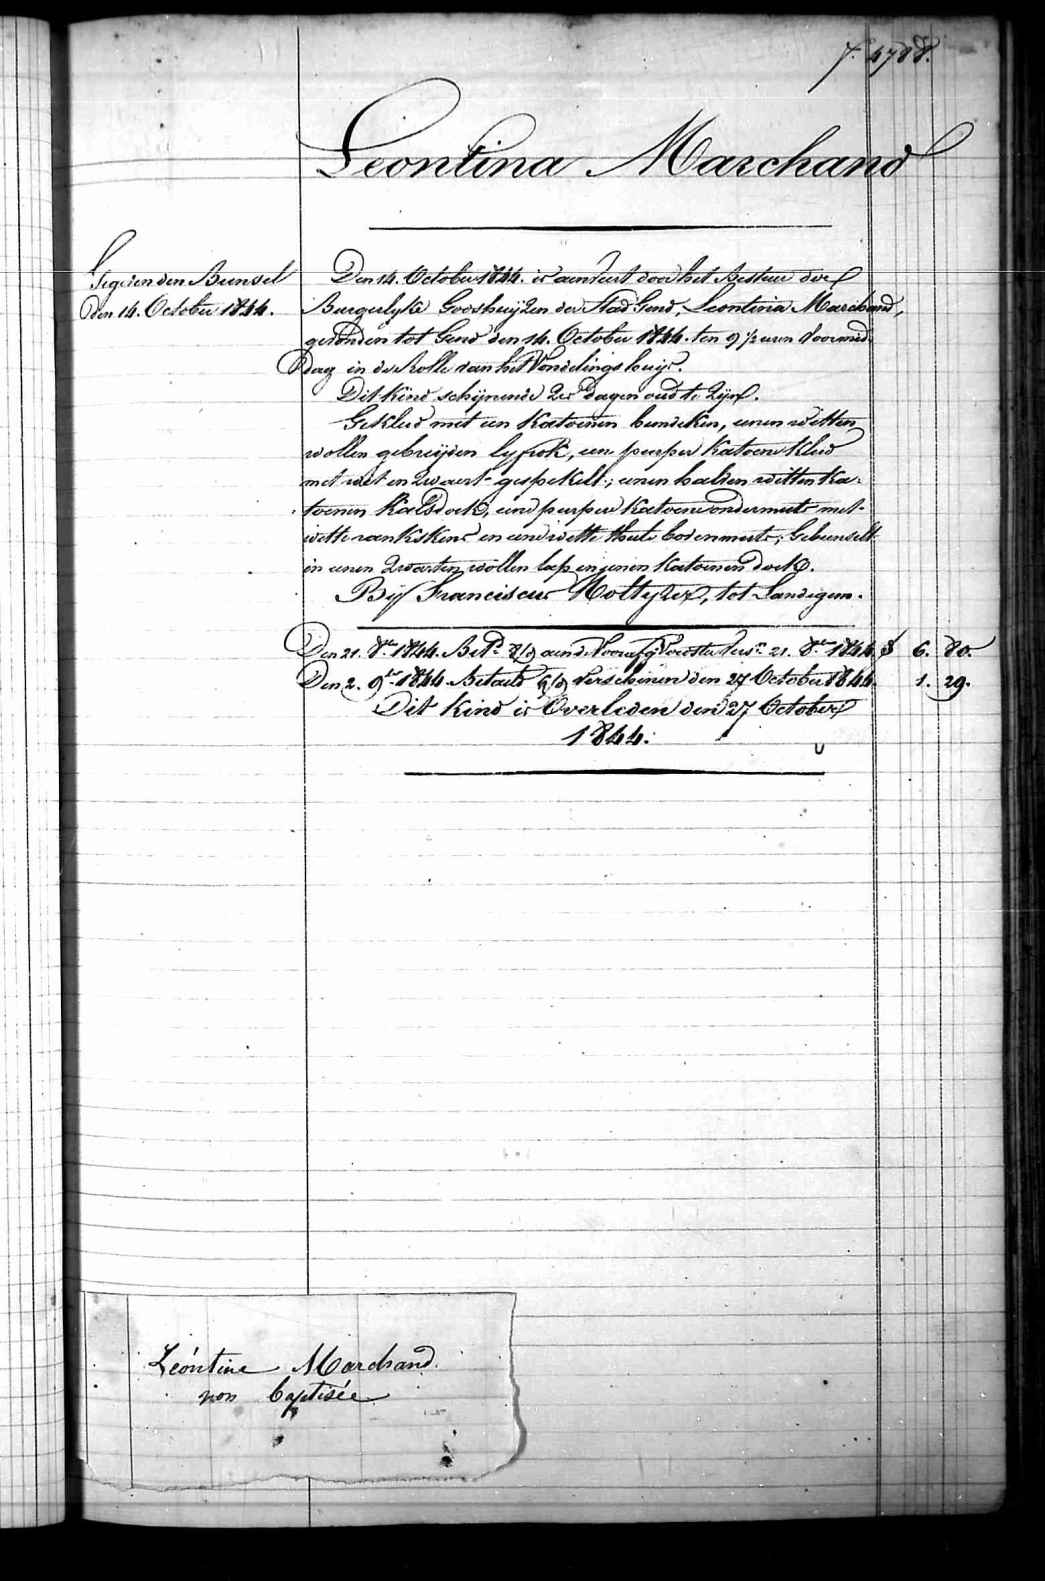 7. 4788.
Leontina Marchand
Gegeven den Bunsel
den 14. October 1844.
Den 14. October 1844. is aenveert door het Bestuer der
Burgerlyke Godshuijzen der Stad Gend, Leontina Marchand,
gevonden tot Gend den 14. October 1844. ten 9 ½ uren voormid.
dag in de Rolle van het Vondelingshuijs.
Dit kind schijnende 2er dagen oud te Zijn.
Gekleed met een katoenen hemdeken, eenen witten
wollen gebreijden lyfrok, een purper katoene kleed
met wit en Zwaert gespekelt; eenen halven witten Ka-
toenen halsdoek, eene purper katoene ondermuts met
witte kanskens en eene witte thule bovenmuts; Gebunselt
in eenen Zwarten wollen lap en eenen katoenen doek.
Bij Franciscus Noltyzer, tot Landegem.
Den 21. 8bre 1844. Bet. aen de Voorsz. Voedster 21. 8bre 1844. f 6. 80.
Den 2. 9bre 1844 Betaeld verschenen den 27 October 1844. 1. 29.
Dit kind is Overleden den 27 October
1844.
Léontine Marchand
non baptisée